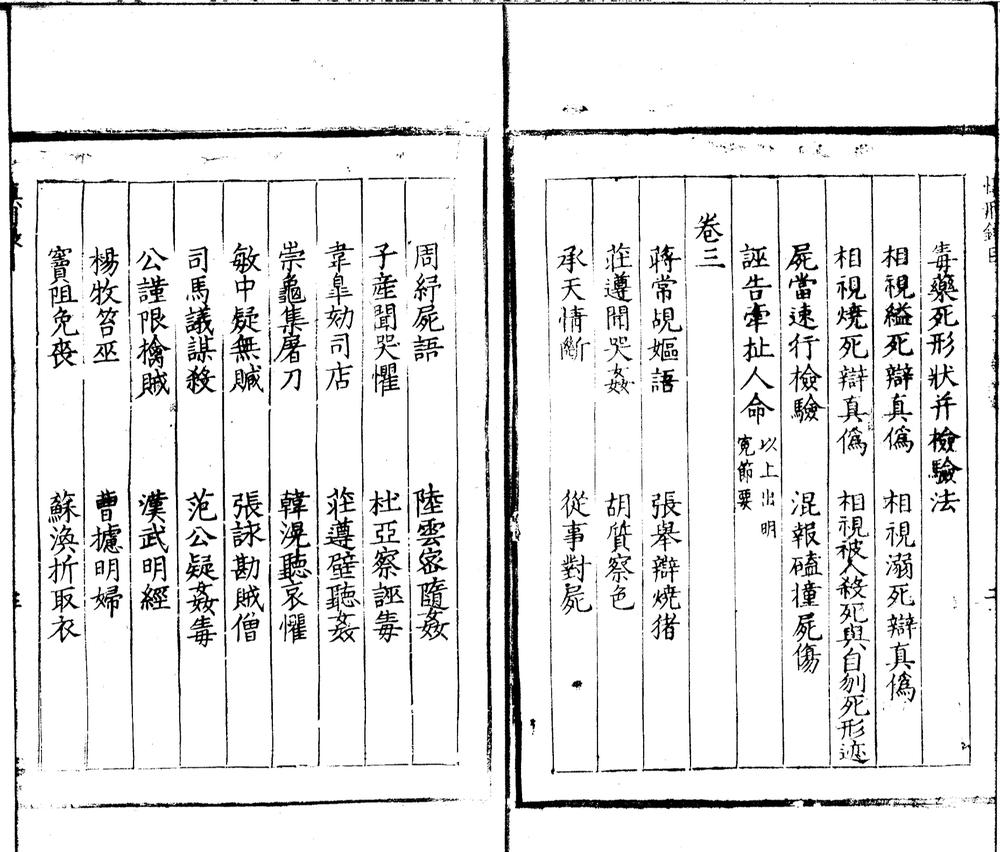 毒藥死形狀并檢驗法
相視縊死辯真僞　相視溺死辯真僞
相視燒死辯真僞　相視被人殺死與自刎死形迹
屍當速行檢驗　混報磕撞屍傷
誣告牽扯人命　以上出明
寃節要
卷三
蔣常覘嫗語　張舉辯燒猪
莊遵聞哭姦　胡質察色
承天情斷　從事對屍
周紓屍語　陸雲密隨姦
子産聞哭懼　杜亞察誣毒
韋臯劾司店　莊遵壁聽姦
崇龜集屠刀　韓滉聽哀懼
敏中疑無贓　張詠勘賊僧
司馬議謀殺　范公疑姦毒
公謹限擒賊　漢武明經
楊牧笞巫　曹攄明婦
竇阻免喪　蘇渙折取衣